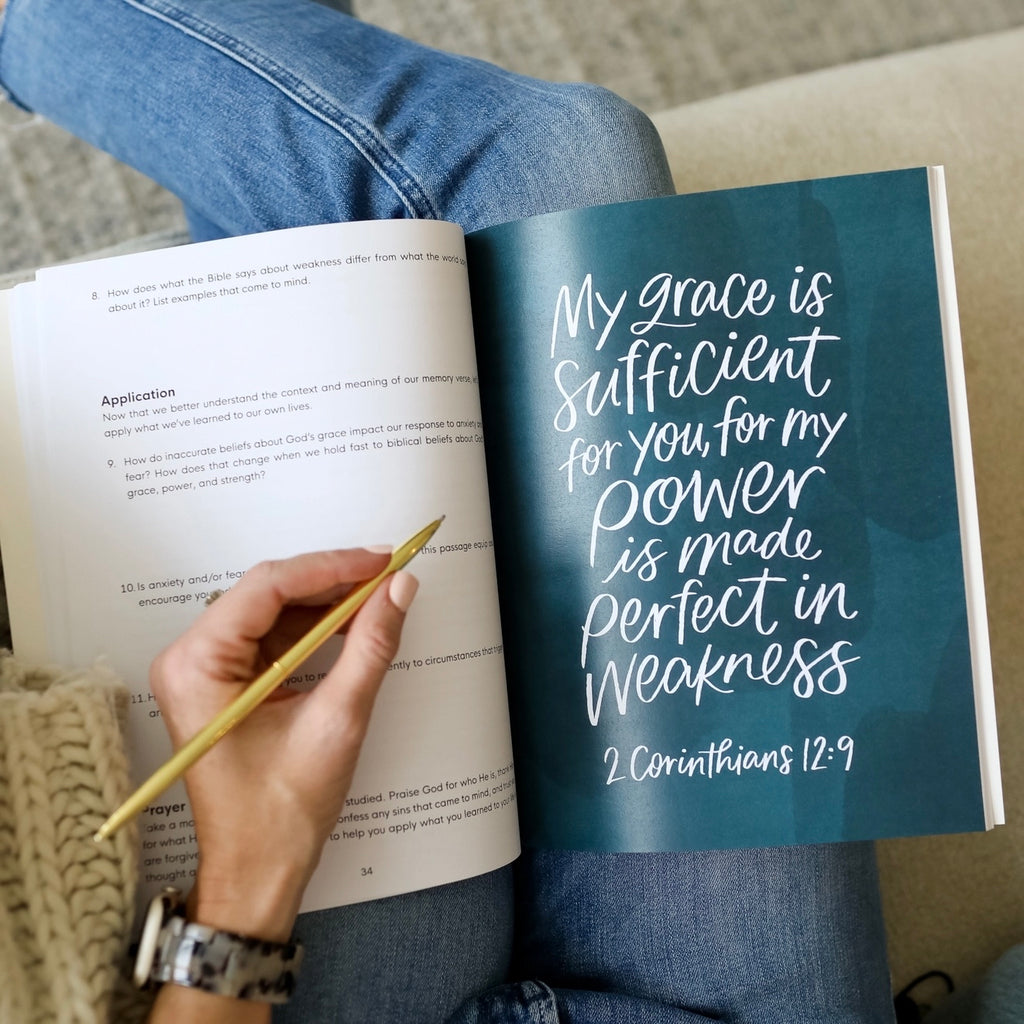 8. How does what the Bible says about weakness differ from what the world
about it? List examples that come to mind.
Application
Now that we better understand the context and meaning of our memory verse,
apply what we've learned to our own lives.
9. How do inaccurate beliefs about God's grace impact our response to anxiety
fear? How does that change when we hold fast to biblical beliefs about
grace, power, and strength?
10. Is anxiety and/or fear this passage
encourage
11.
ently to circumstances that
you to
Prayer
studied. Praise God for who He is,
for what onfess any sins that came to mind, and
are to help you apply what you learned to your
thought
34
My grace is
sufficient
for you, for my
power
is made
perfect in
weakness
2 Corinthians 12:9